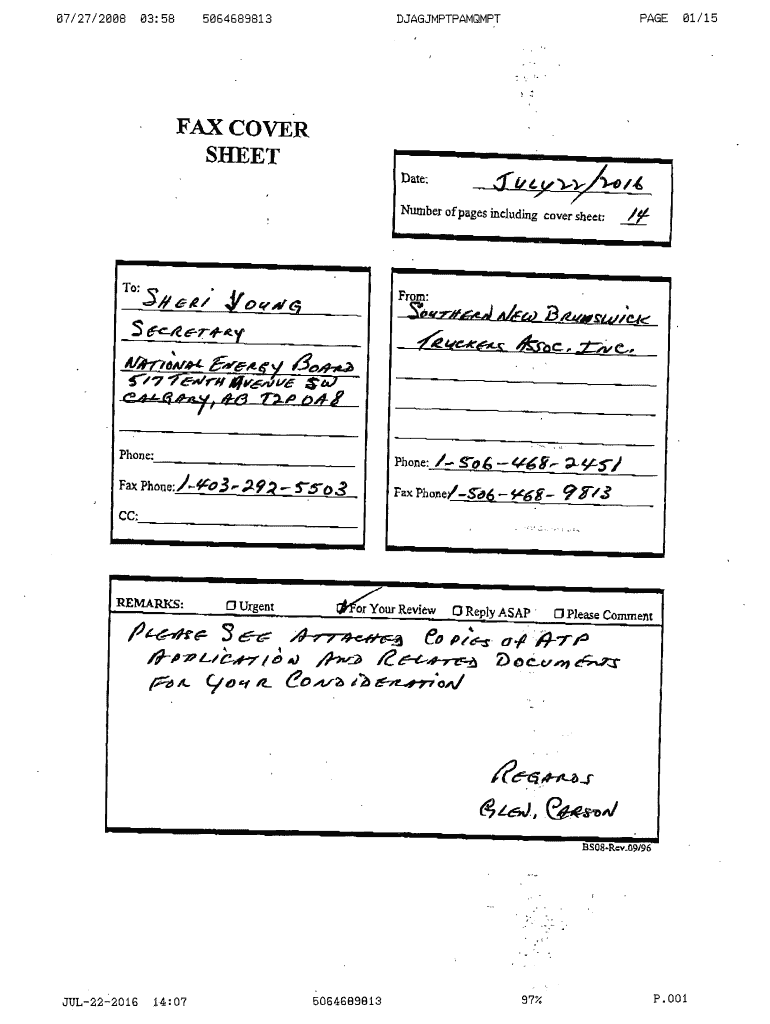 07/27/2008 03:58 5064689813 DJAGJMPTPAMQMPT PAGE 01/15
FAX COVER
SHEET
Date: JULY 22/2016
Number of pages including cover sheet: 14
To: SHERI YOUNG
SECRETARY
NATIONAL ENERGY BOARD
517 TENTH AVENUE SW
CALGARY, AB T2P 0A8
Phone:
Fax Phone: 1-403-292-5503
CC:
From:
SOUTHERN NEW BRUNSWICK
TRUCKERS ASSOC. INC.
Phone: 1-506-468-2451
Fax Phone: 1-506-468-9813
REMARKS: Urgent For Your Review Reply ASAP Please Comment
PLEASE SEE ATTACHED COPIES OF ATP
APPLICATION AND RELATED DOCUMENTS
FOR YOUR CONSIDERATION
REGARDS
GLEN, CARSON
BS08-Rev.09/96
JUL-22-2016 14:07 5064689813 97% P.001